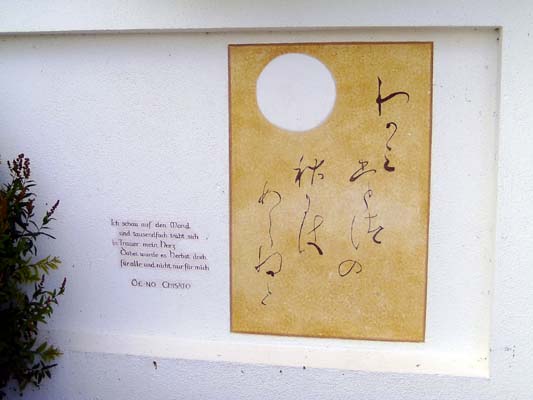 Ich schau auf den Mond,
und tausendfach trübt sich
in Trauer mein Herz
Dabei wurde es Herbst doch
für alle und nicht nur für mich
ŌE NO CHISATO
わかみ
の
秋